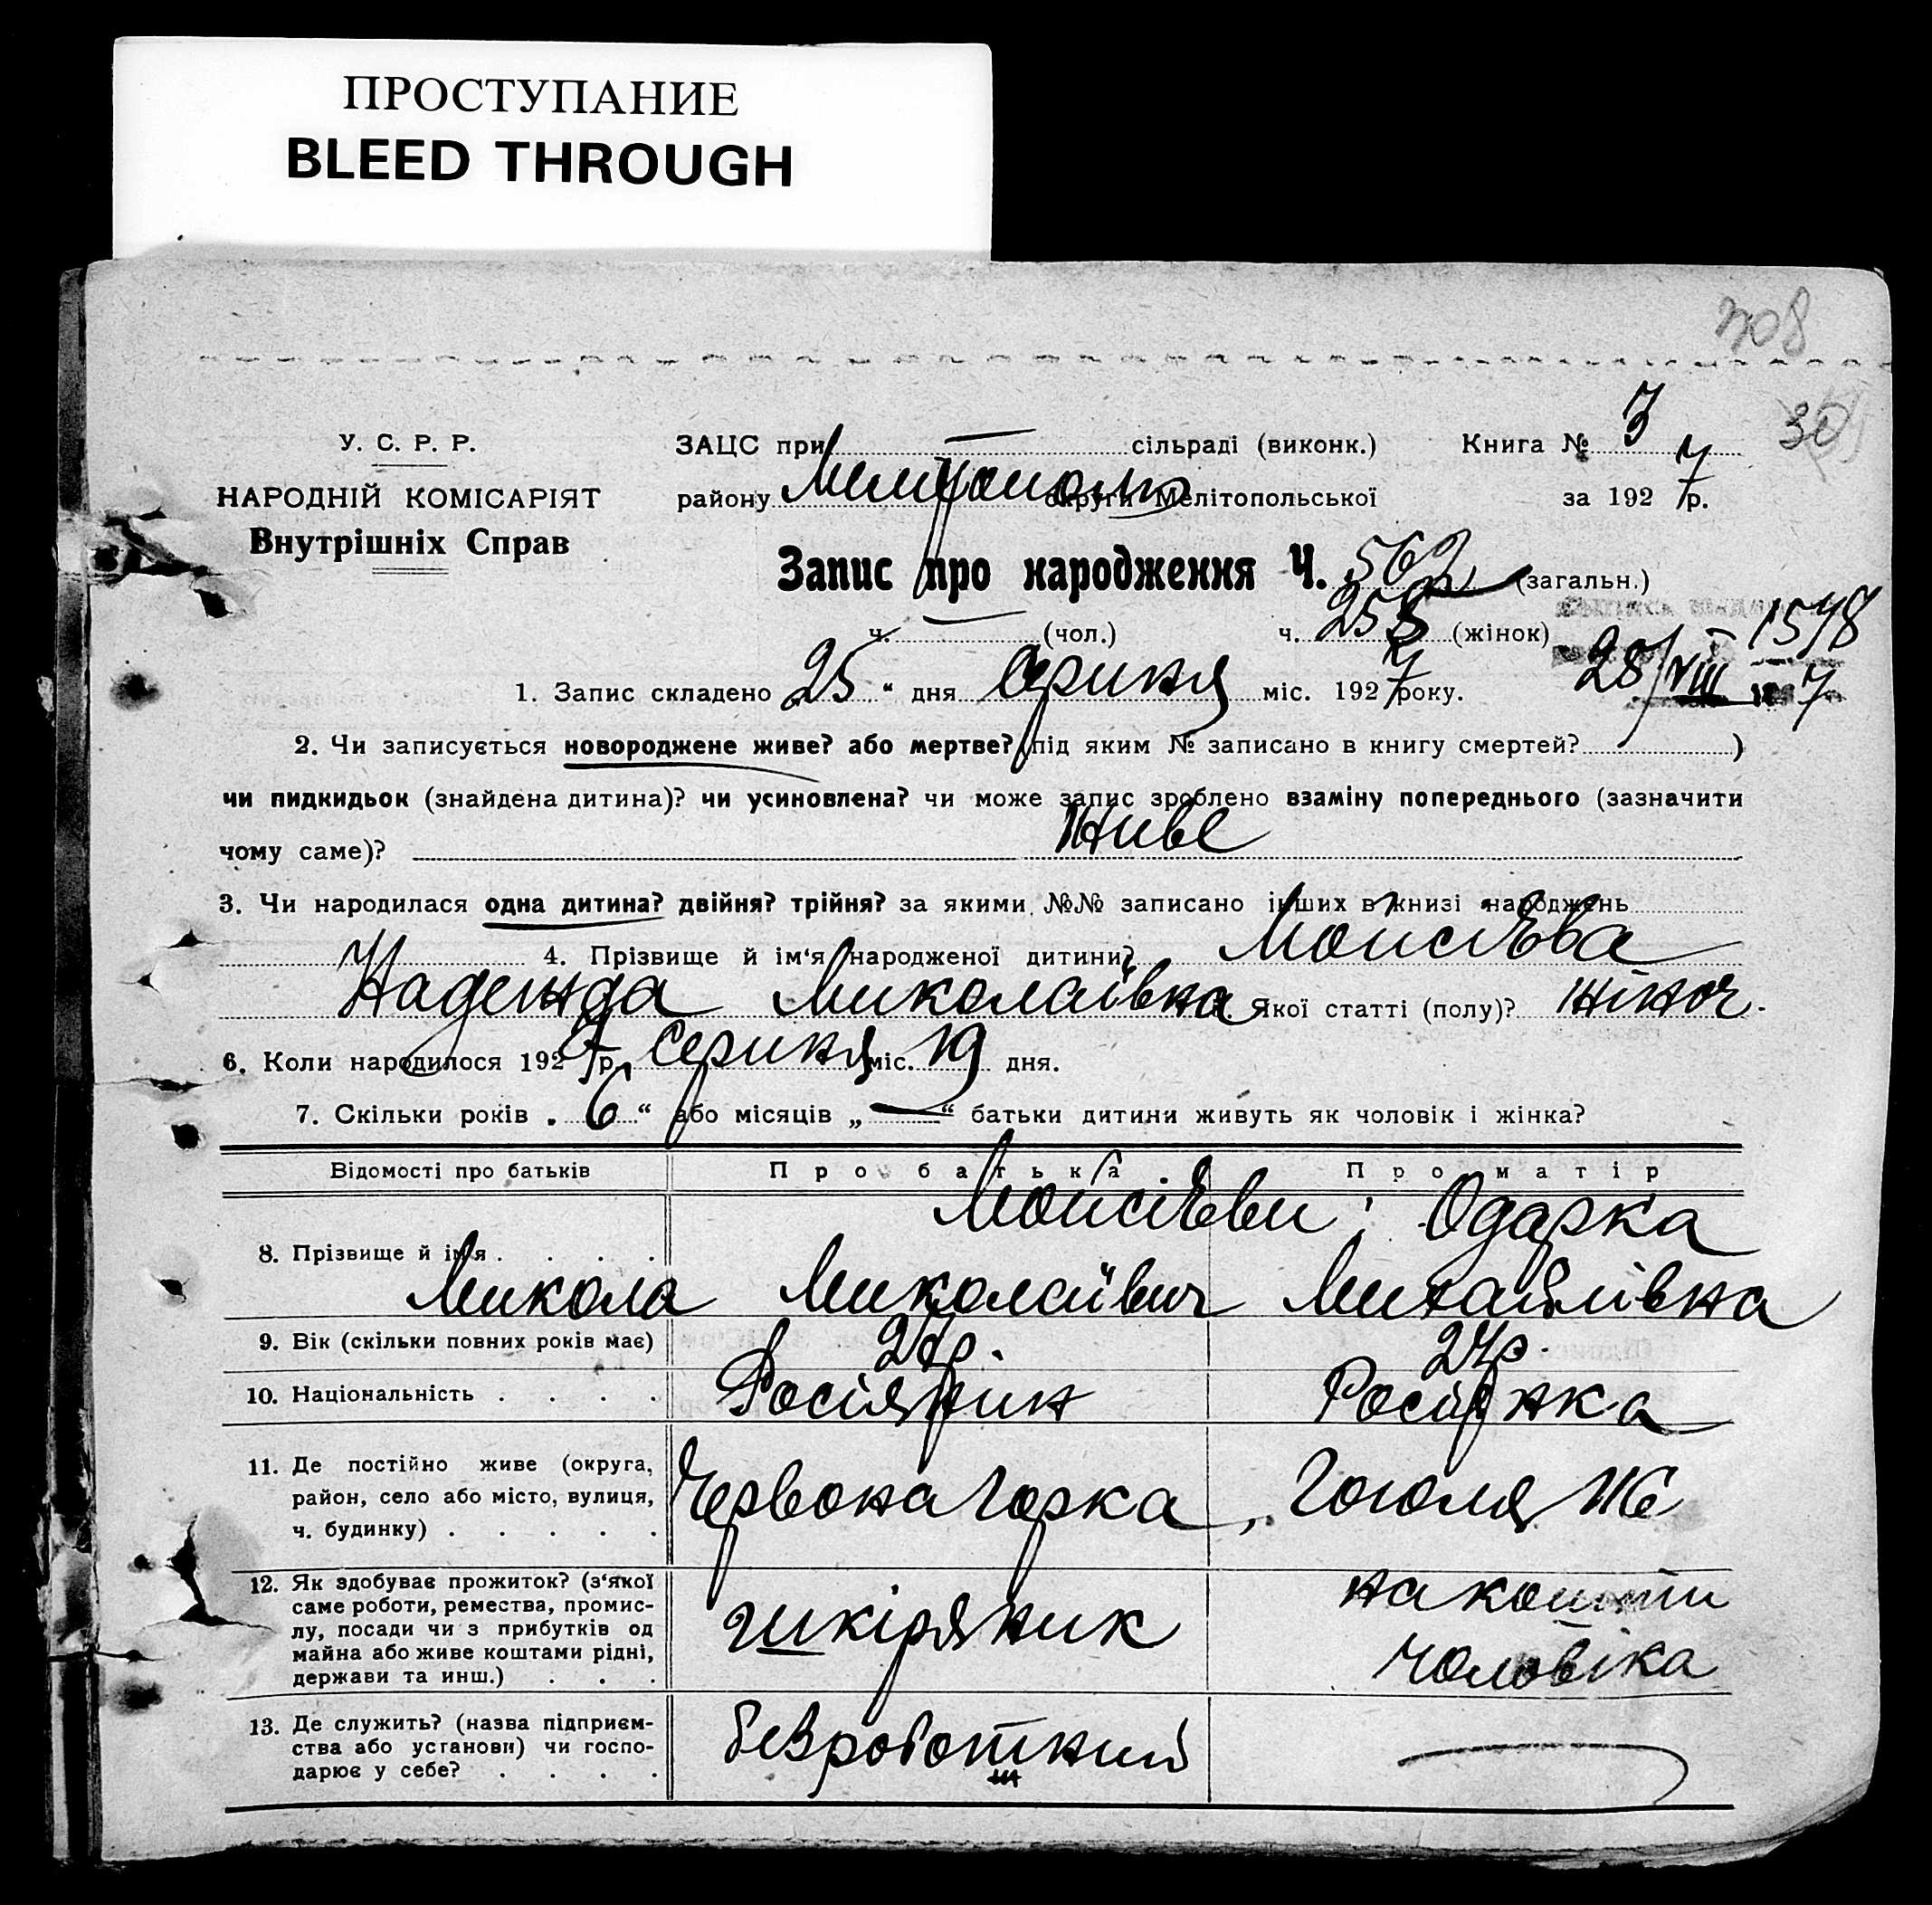 ПРОСТУПАНИЕ
BLEED THROUGH
308
У. С. Р. Р.
НАРОДНІЙ КОМІСАРІЯТ
Внутрішніх Справ
ЗАЦС при — сільраді (виконк.) Книга № 3
району Мелітополь округи Мелітопольської за 1927 р.
Запис про народження Ч. 562 (загальн.)
ч. — (чол.) ч. 255 (жінок)
1578
28/VIII 7
1. Запис складено 25 " дня Серпня міс. 1927 року.
2. Чи записується новороджене живе? або мертве? (під яким № записано в книгу смертей? )
чи пидкидьок (знайдена дитина)? чи усиновлена? чи може запис зроблено взаміну попереднього (зазначити
чому саме)? живе
3. Чи народилася одна дитина? двійня? трійня? за якими №№ записано інших в книзі народжень
4. Прізвище й ім'я народженої дитини? Моисієва
Надежда Миколаївна Якої статті (полу)? жіноч.
6. Коли народилося 1927 р. Серпня міс. 19 дня.
7. Скільки років „ 6 “ або місяців „ — “ батьки дитини живуть як чоловік і жінка?
Відомості про батьків Про батька Про матір
8. Прізвище й ім'я . . . . Моисієви: Одарка
Микола Миколаївич Михайлівна
9. Вік (скільки повних років має) 27р. 24р.
10. Національність . . . . Росіянин Росіянка
11. Де постійно живе (округа,
район, село або місто, вулиця,
ч. будинку) . . . . . Червона Горка, Гоголя
12. Як здобуває прожиток? (з'якої
саме роботи, ремества, промис-
лу, посади чи з прибутків од
майна або живе коштами рідні,
держави та инш.) . . . шкіряник на кошти чоловіка
13. Де служить? (назва підприєм-
ства або установи) чи госпо-
дарює у себе? . . . . безроботний —